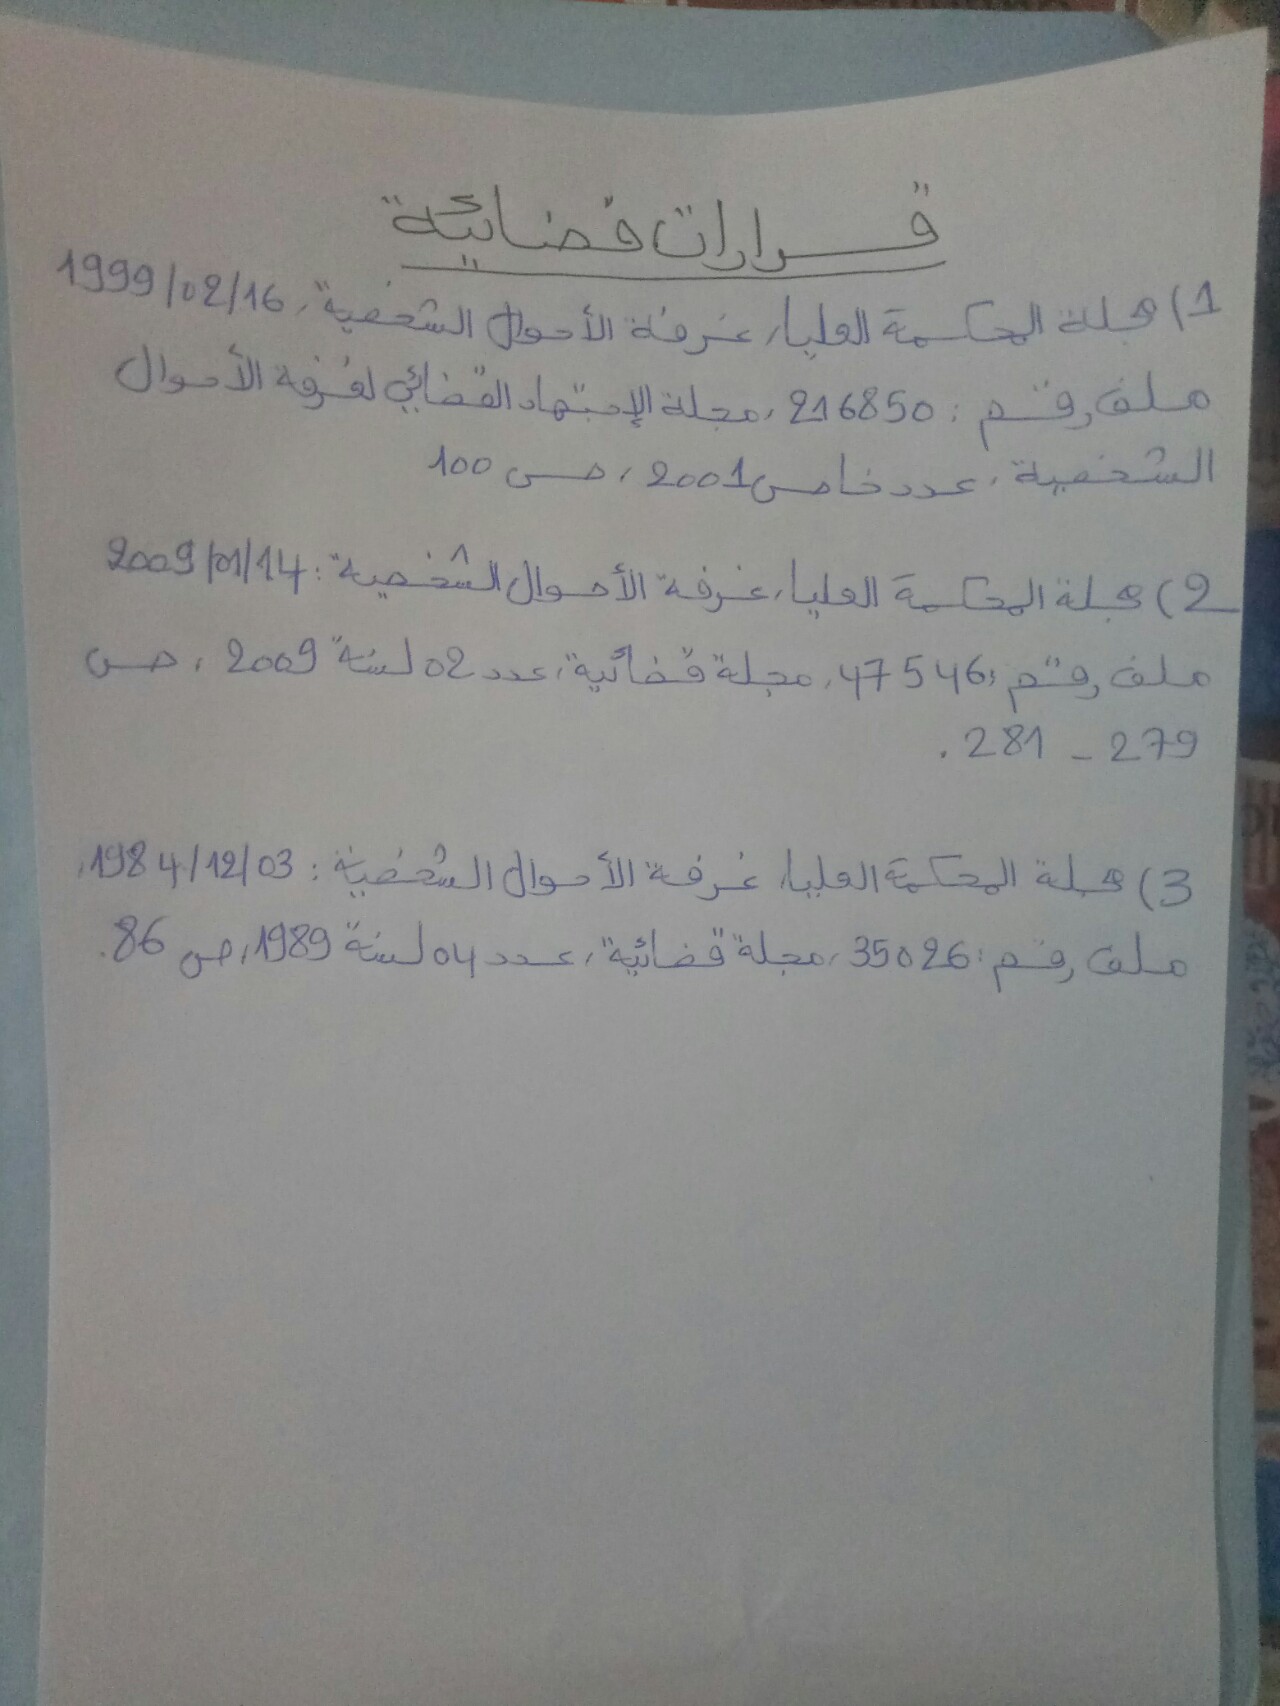 قرارات قضائية
1) مجلة المحكمة العليا، غرفة الأحوال الشخصية، 1999/02/16
ملف رقم : 216850، مجلة الإجتهاد القضائي لغرفة الأحوال
الشخصية، عدد خاص 2001، ص 100
2) مجلة المحكمة العليا، غرفة الأحوال الشخصية : 2009/01/14
ملف رقم : 47546، مجلة قضائية، عدد 02 لسنة 2009، ص
279 - 281 .
3) مجلة المحكمة العليا، غرفة الأحوال الشخصية : 1984/12/03،
ملف رقم : 35026، مجلة قضائية، عدد 04 لسنة 1989، ص 86.